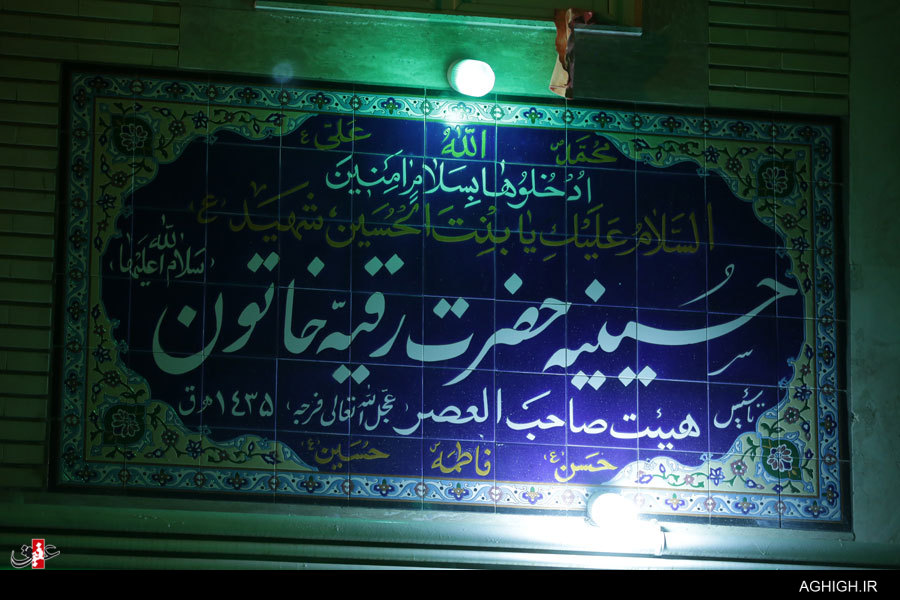 محمّد الله علی ع
ادخلوها بسلام آمنین
السلام علیك یا بنت الحسین شهید ع
حسینیه حضرت رقیّه خاتون سلام الله علیها
تأسیس
هیئت صاحب العصر عجل الله تعالی فرجه ۱۴۳۵ ه‍ ق
حسن ع فاطمه حسین ع
عقیق
AGHIGH.IR